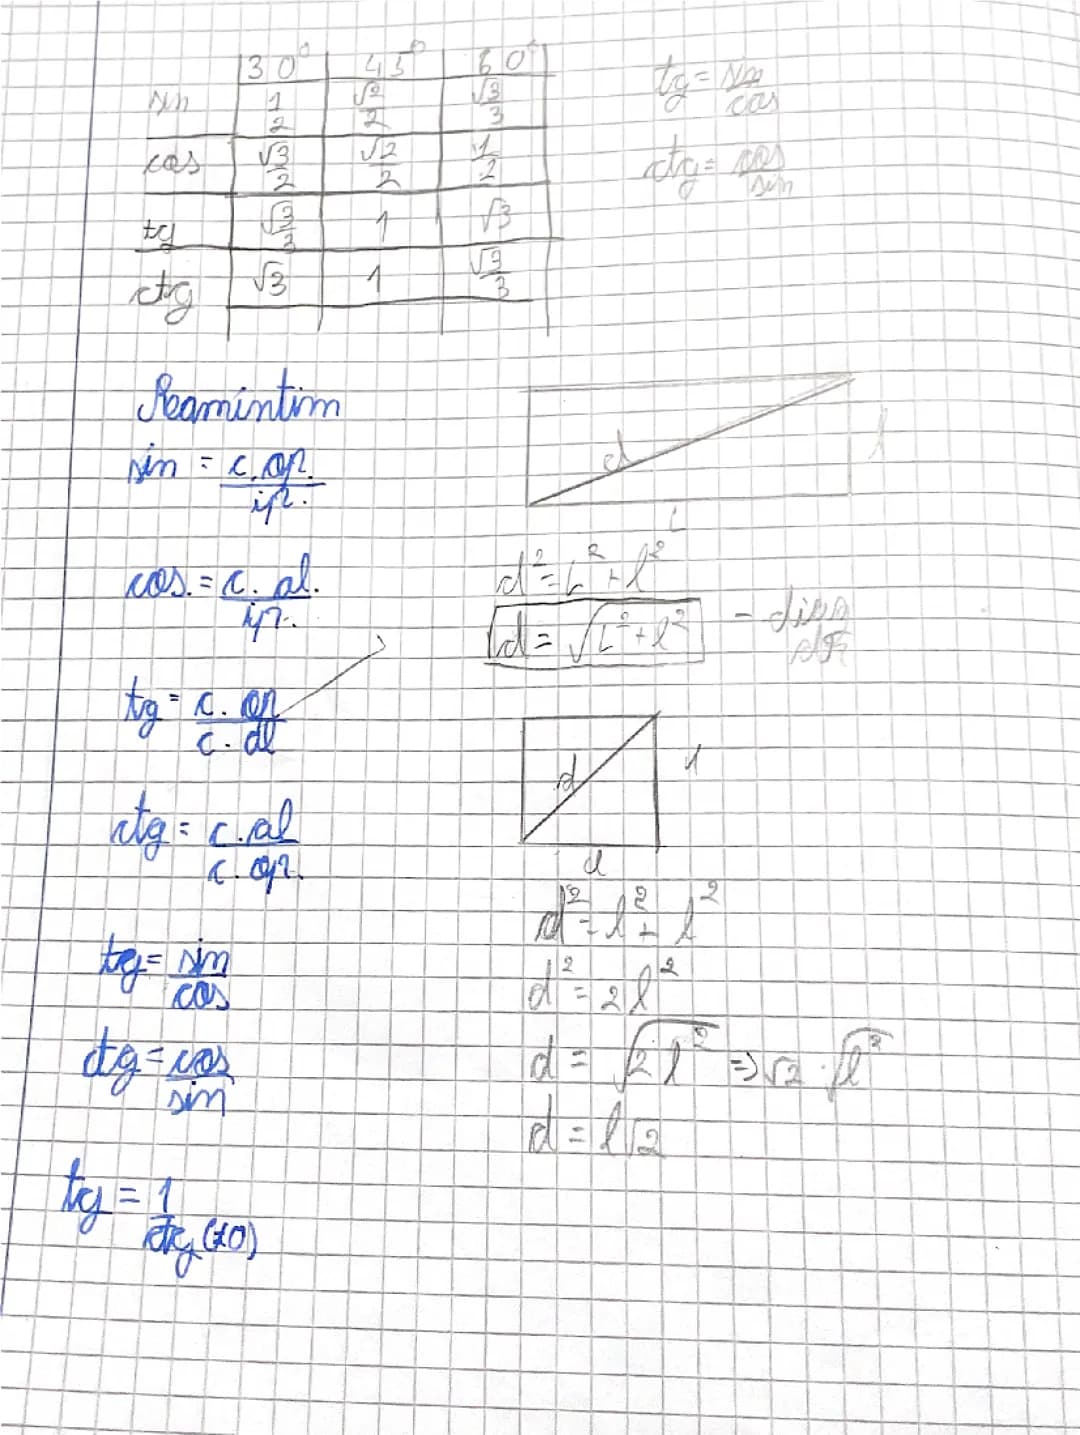 30° 45° 60°
sin 1/2 √2/2 √3/3
cos √3/2 √2/2 1/2
tg √3/3 1 √3
ctg √3 1 √3/3
tg = sin/cos
ctg = cos/sin
Reamintim
sin = c. op./ip.
cos. = c. al./ip.
tg = c. op/c. al
ctg = c. al/c. op.
tg = sin/cos
ctg = cos/sin
tg = 1/ctg (≠0)
d
l
L
d² = L² + l²
d = √L² + l²
d
l
d² = l² + l²
d² = 2l²
d = √2l² => √2 · √l²
d = l√2